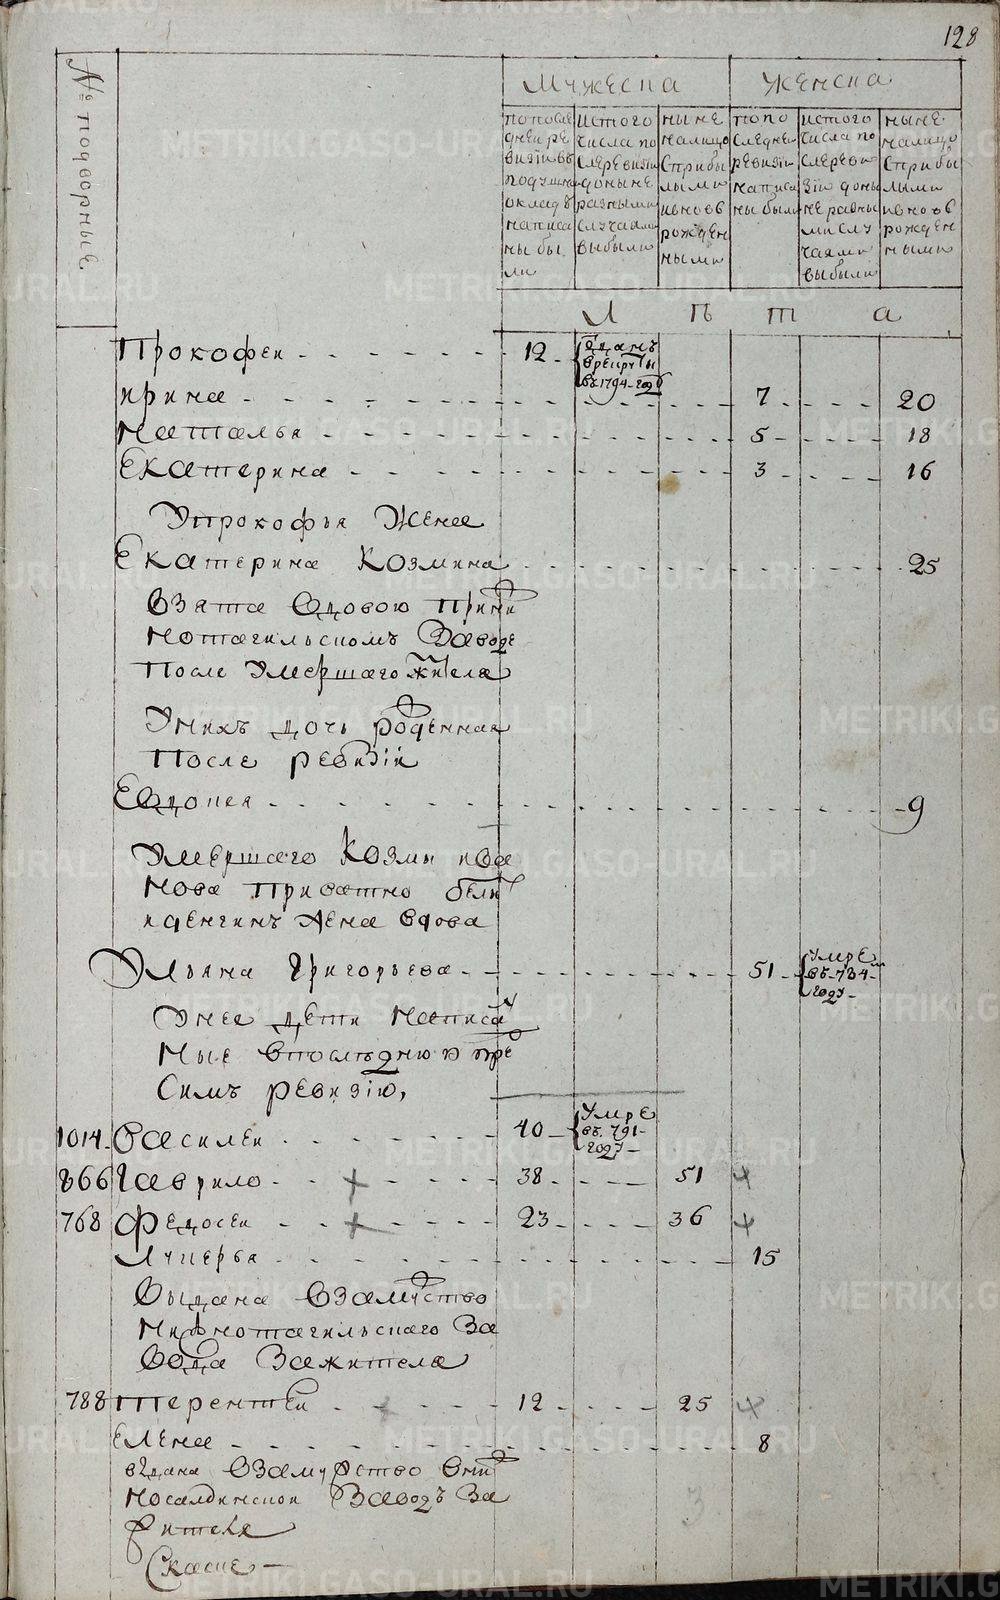 128
№ подворные
Мужеска
Женска
по после
дней ре
визiи въ
подушна
окладъ
написа
ны бы
ли
из того
числа по
сле ревизiи
до ныне
разными
случаями
выбыли
ны не
налицо
с прибы
лыми
и вновь
рожден
ными
по по
следней
ревизiи
написа
ны были
из того
числа по
сле реви
зiи до ны
не разны
ми слу
чаями
выбыли
ныне
налицо
с прибы
лыми
и вновь
рожден
ными
Л ѣ т а
Прокофеи 12 отданъ
в рекруты
въ 1794 году
ирина 7 20
Наталья 5 18
Екатерина 3 16
У прокофья Жена
Екатерина Козмина 25
Взята вдовою при ни
жнотагильскомъ Заводе
После Умершаго жителя
У них дочь рожденная
После ревизiи
Евдокея 9
Умершаго Козмы ива
нова
жена вдова
Ульяна Григорьева 51 Умре
въ 794
году
У нее дети написан
ные в последнюю пре
симъ ревизiю,
1014 Василеи 40 Умре
въ 791
году
866 Гаврило 38 51
768 Федосеи 23 36
Лукерья 15
Выдана Взамуство
Нижнотагильскаго За
вода За жителя
788 терентеи 12 25
елена 8
выдана Взамужство в ниж
носалдинскои Заводъ За
жителя
3